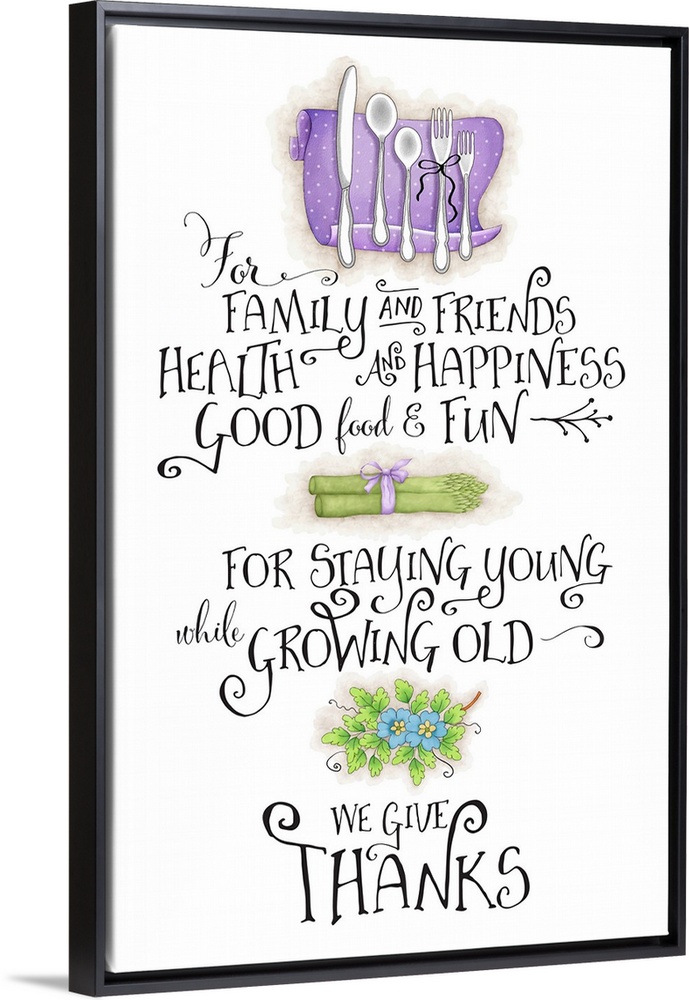 For
FAMILY AND FRIENDS
HEALTH AND HAPPINESS
GOOD food & FUN
FOR STAYING YOUNG
while GROWING OLD
WE GIVE
THANKS